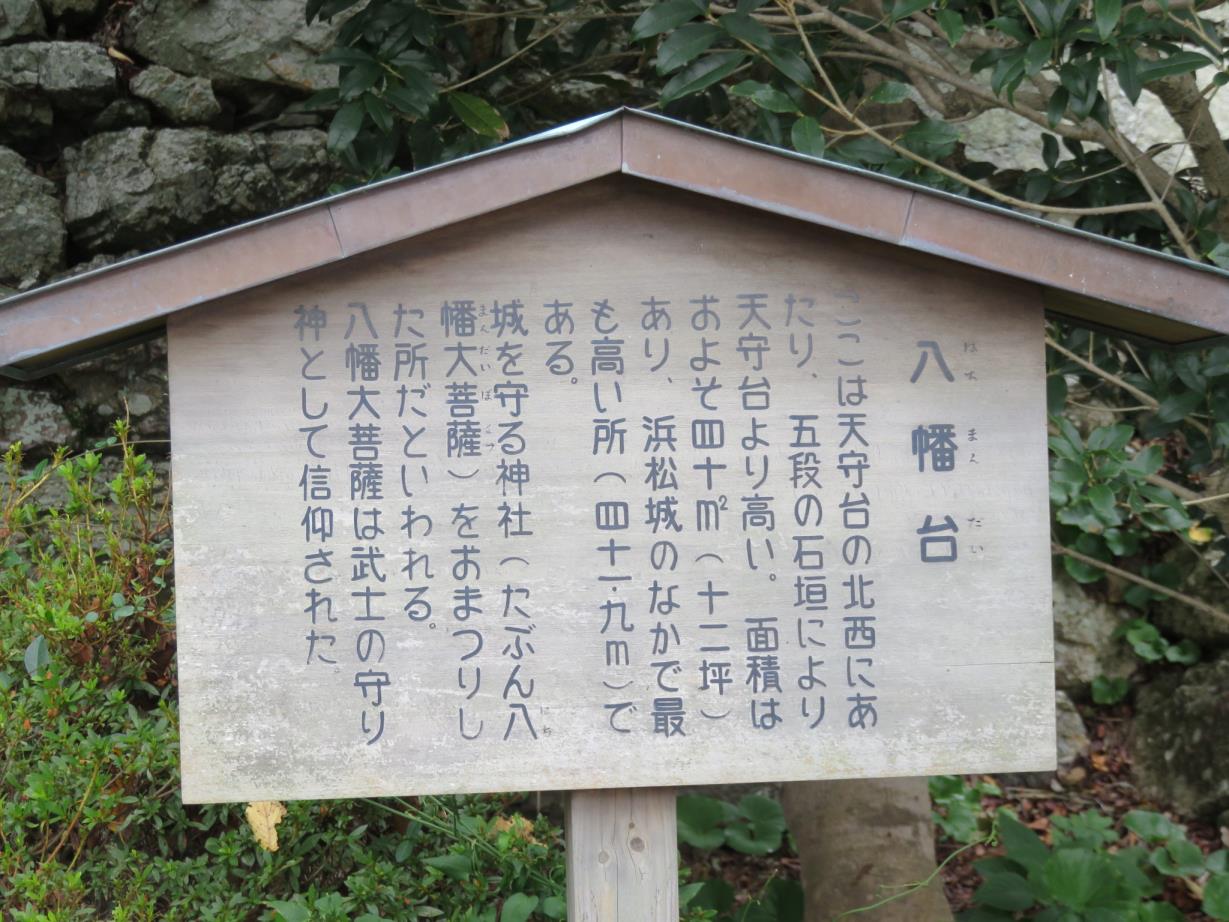 八幡台
はちまんだい
ここは天守台の北西にあ
たり、五段の石垣により
天守台より高い。面積は
およそ四十m²(十二坪)
あり、浜松城のなかで最
も高い所(四十一・九m)で
ある。
城を守る神社(たぶん八
幡大菩薩)をおまつりし
た所だといわれる。
八幡大菩薩は武士の守り
神として信仰された